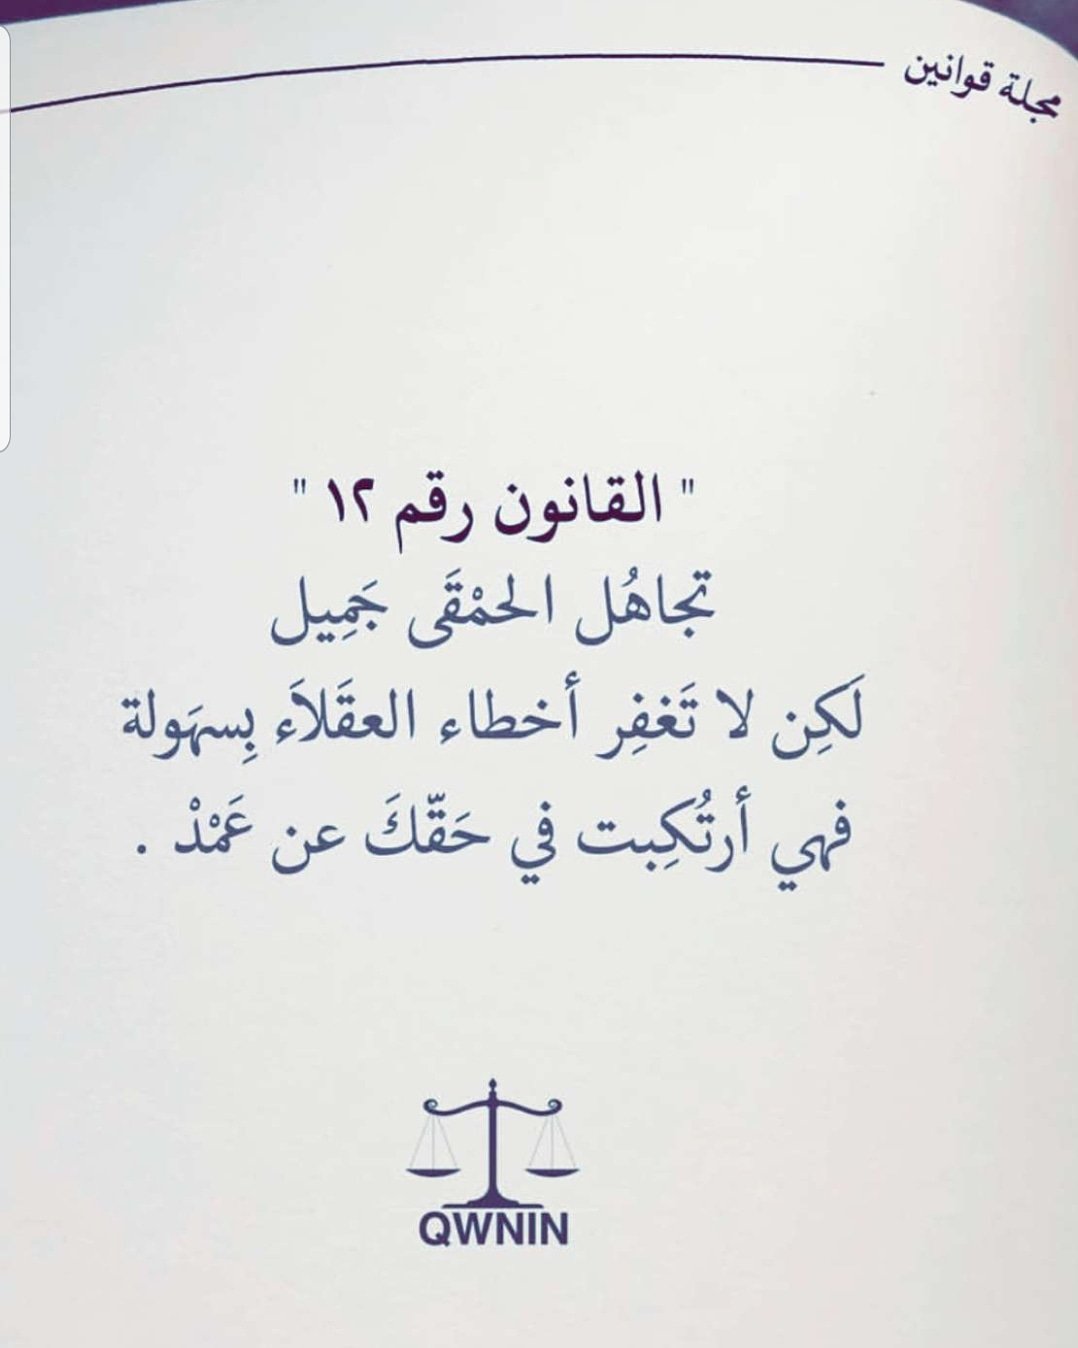 مجلة قوانين
" القانون رقم ١٢ "
تجاهُل الحمْقَى جَمِيل
لَكِن لا تَغفِر أخطاء العقَلاَء بِسهَولة
فهي أرتُكِبت في حَقّكَ عن عَمْدْ .
QWNIN